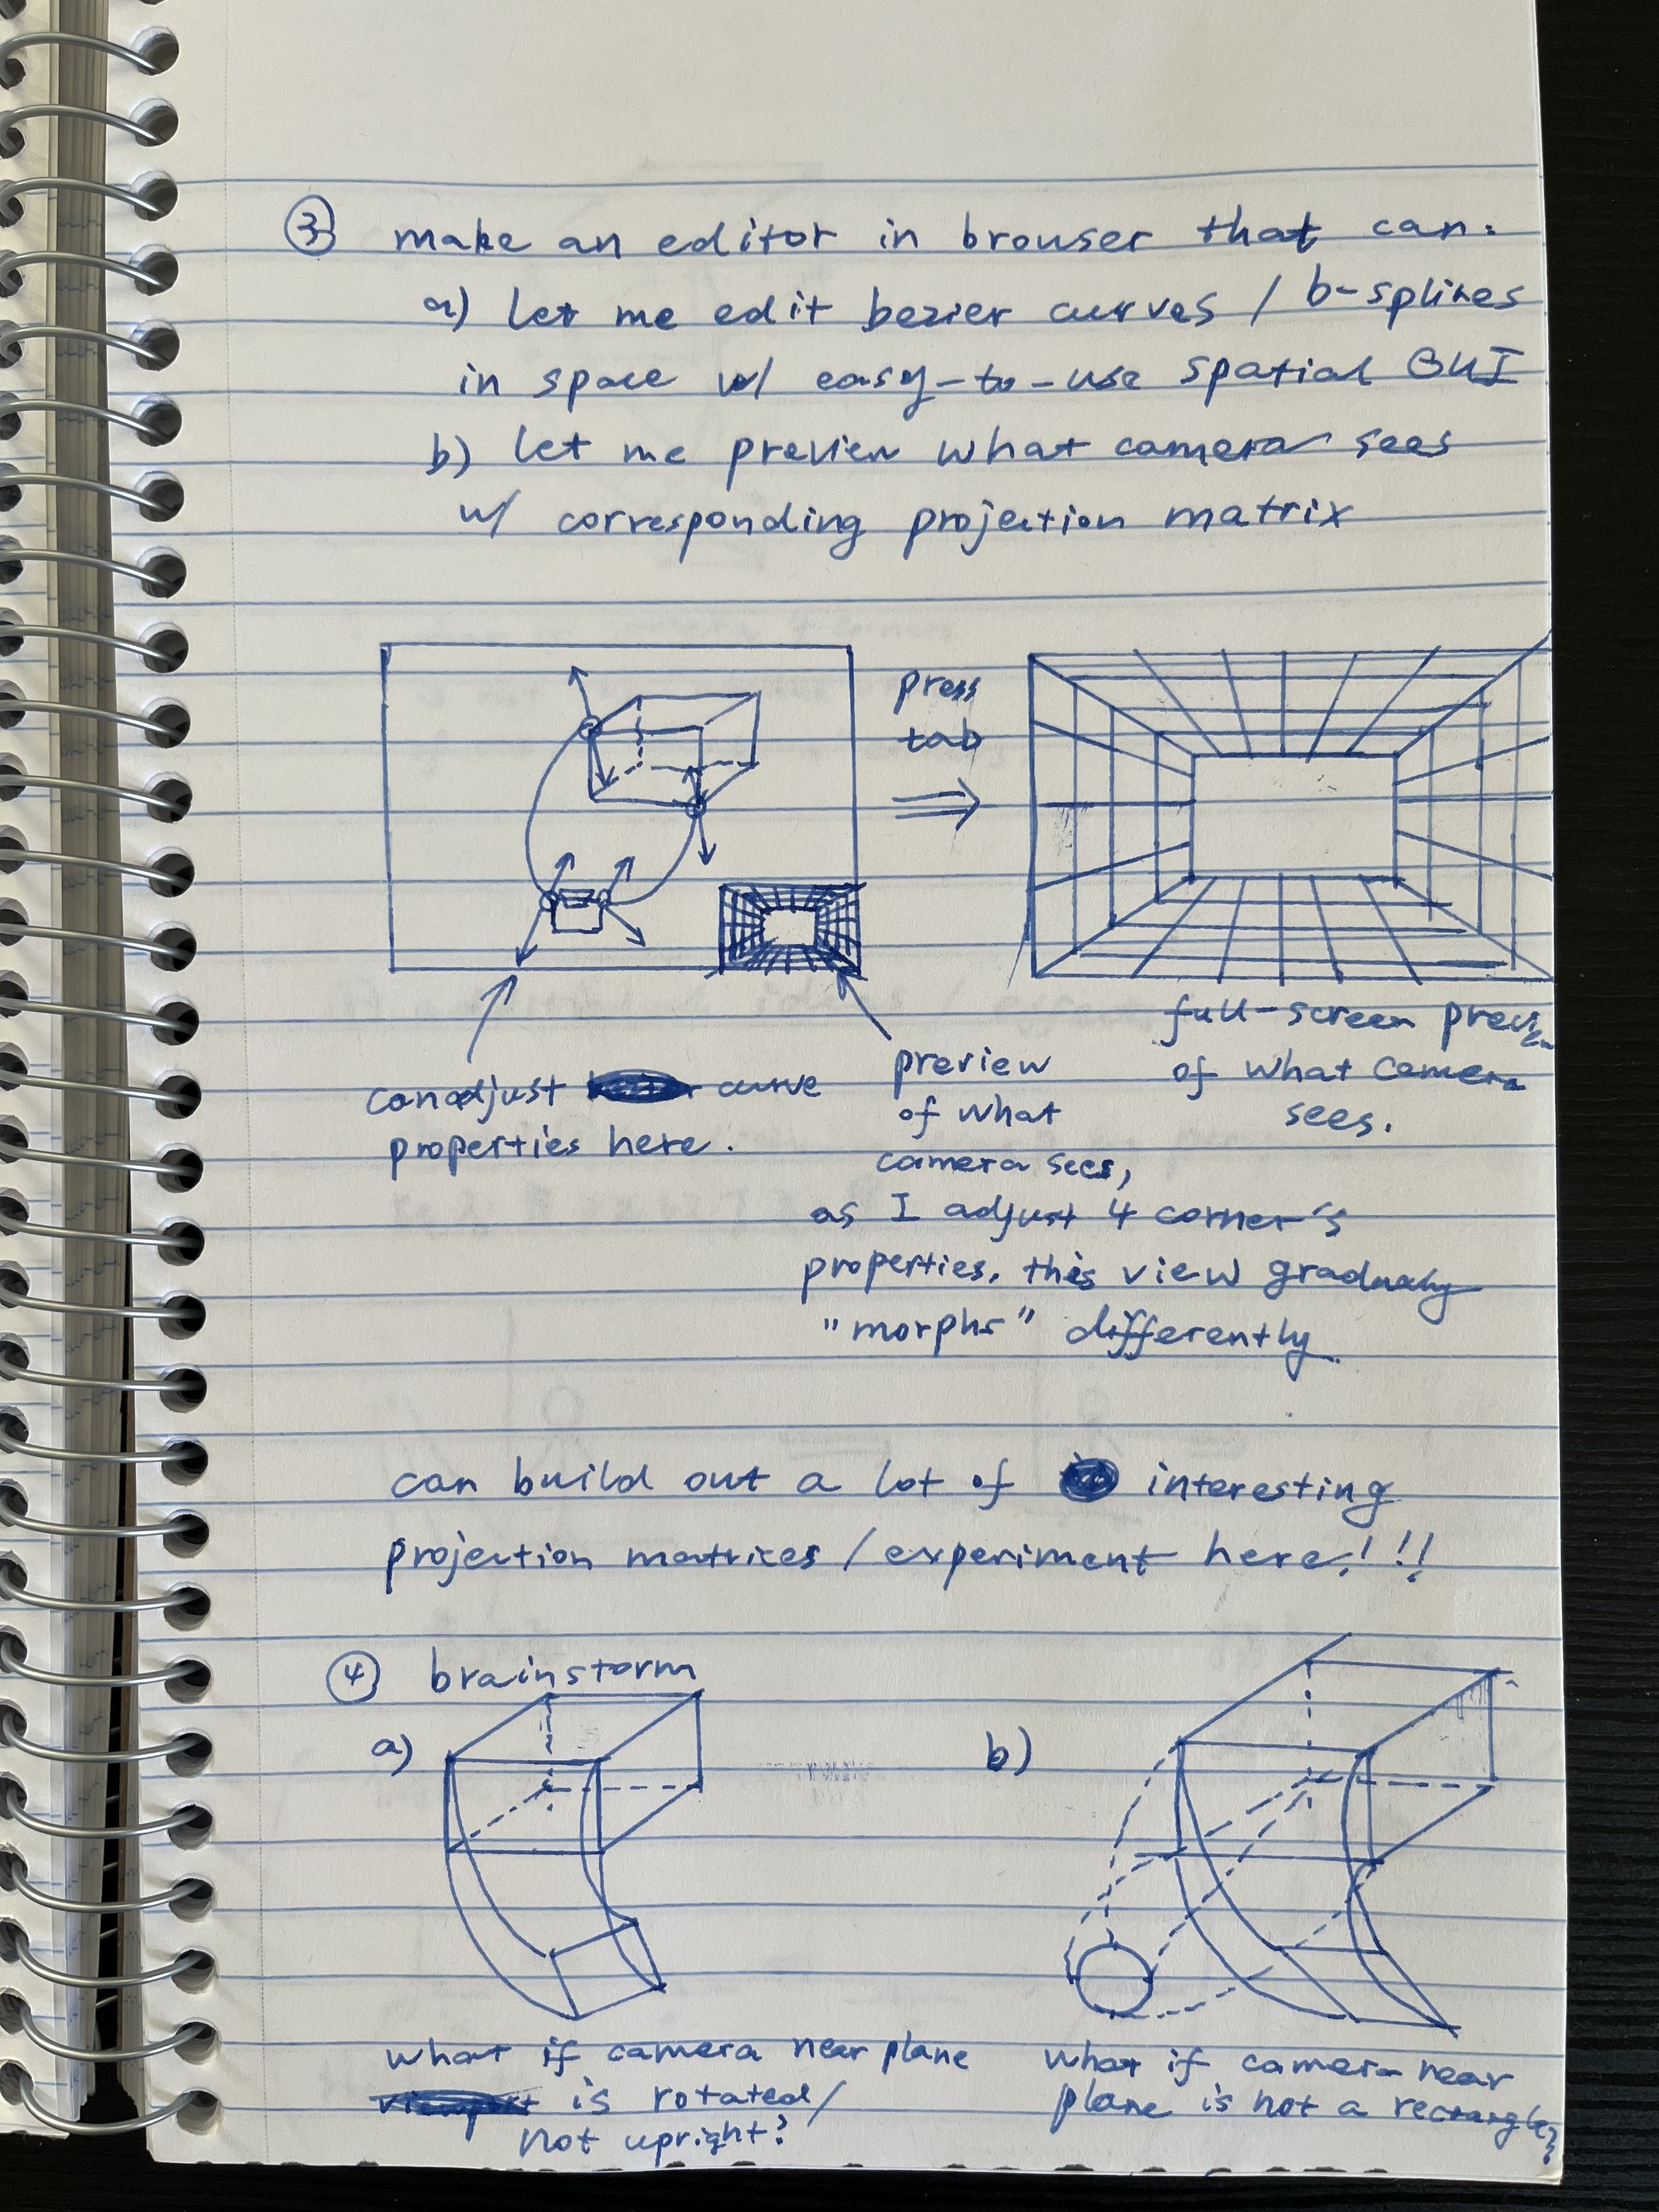 ③ make an editor in browser that can:
a) let me edit bezier curves / b-splines
in space w/ easy-to-use spatial GUI
b) let me preview what camera sees
w/ corresponding projection matrix
press
tab
full-screen preview
of what camera
sees.
can adjust curve
properties here.
preview
of what
camera sees,
as I adjust 4 corner's
properties, this view gradually
"morphs" differently
can build out a lot of interesting
projection matrices / experiment here!!!
④ brainstorm
a)
b)
what if camera near plane
is rotated/
not upright?
what if camera near
plane is not a rectangle?